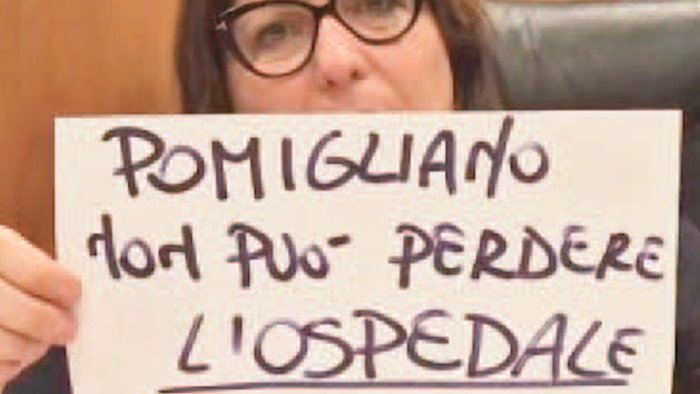 POMIGLIANO
NON PUO' PERDERE
L'OSPEDALE